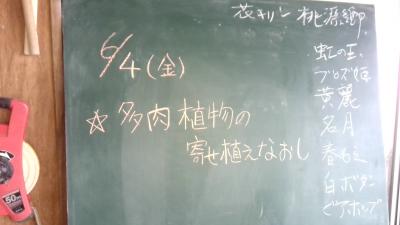 花キリン 桃源郷
6/4(金)
☆多肉植物の
寄せ植えなおし
虹の玉
ブロンズ姫
黄麗
名月
春もえ
白ボタン
ビアホップ
50m